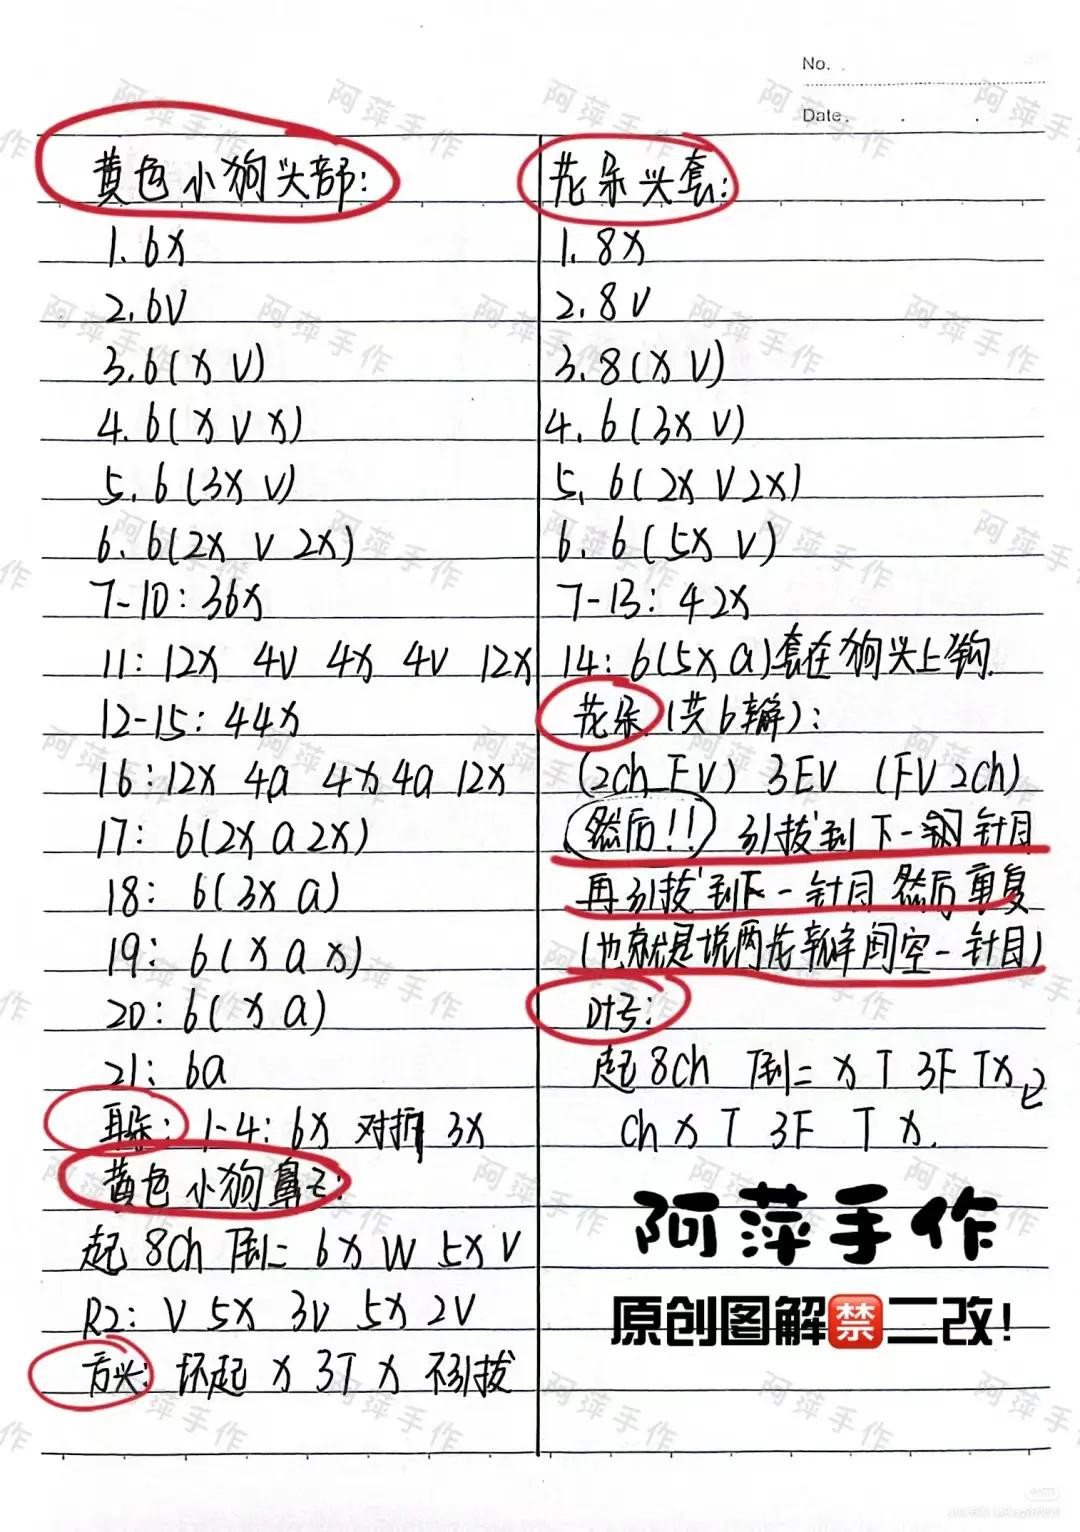 No.
Date.
黄色小狗头部:
1. 6X
2. 6V
3. 6(X V)
4. 6(X V X)
5. 6(3X V)
6. 6(2X V 2X)
7-10: 36X
11: 12X 4V 4X 4V 12X
12-15: 44X
16: 12X 4a 4X 4a 12X
17: 6(2X a 2X)
18: 6(3X a)
19: 6(X a X)
20: 6(X a)
21: 6a
耳朵: 1-4: 6X 对折 3X
黄色小狗鼻子:
起 8ch 倒二 6X W 5X V
R2: V 5X 3V 5X 2V
环起 X 3T X 不引拔
花朵头套:
1. 8X
2. 8V
3. 8(X V)
4. 6(3X V)
5. 6(2X V 2X)
6. 6(5X V)
7-13: 42X
14: 6(5X a)套在狗头上钩.
花朵(共6瓣):
(2ch FV) 3EV (FV 2ch)
然后!! 引拔到下一针目
再引拔到下一针目 然后重复
(也就是说两花瓣间空一针目)
叶子:
起 8ch 倒二 X T 3F TX
ch X T 3F T X.
阿萍手作
原创图解禁二改!